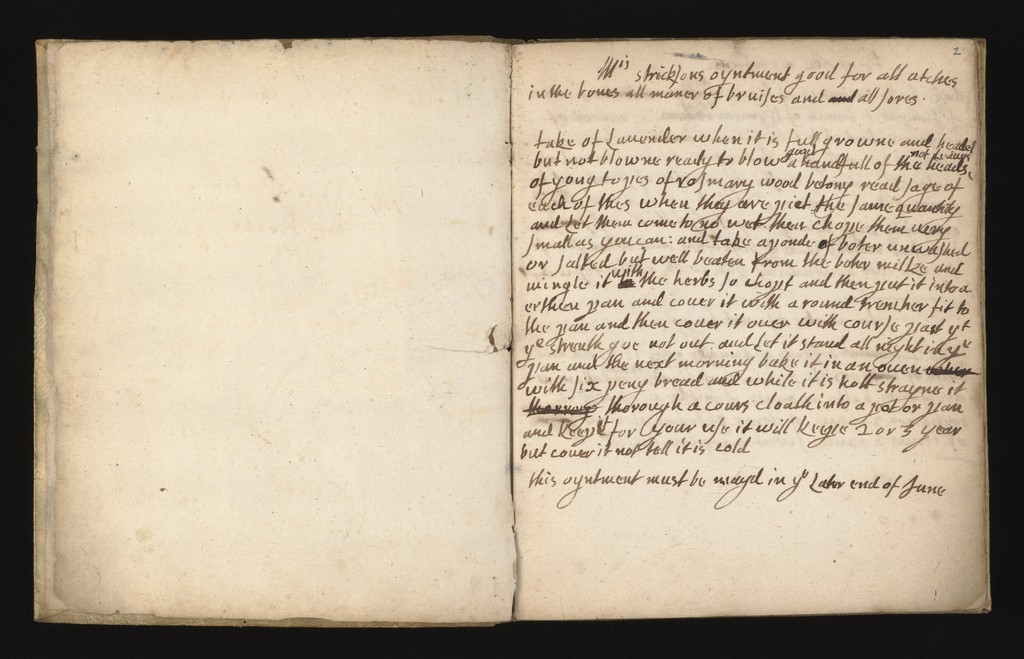 2
Mis stricksons oyntment good for all atches
in the bones all maner of bruises and and all sores.
take of Lauender when it is full growne and headed
but not blowne ready to blow a good handfull of the heads not leaues
of yong topes of rosmary wood betony read sage of
each of thes when they are pict the same quantity
and let them come to no wet then chope them uery
small as you can: and take a ponde of boter unwashed
or salted but well beaten from the boter milke and
mingle it with the herbs so chopt and then put it into a
erthen pan and couer it with a round trencher fit to
the pan and then couer it ouer with course past yt
ye strenth goe not out and let it stand all night in ye
pan and the next morning bake it in an ouen
with six peny bread and while it is hott strayne it
thorrow thorough a cours cloath into a pot or pan
and keep it for your use it will keepe 2 or 3 year
but couer it not tell it is cold
this oyntment must be mayd in ye Later end of June